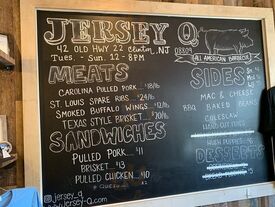 JERSEY Q
42 OLD HWY 22 Clinton, NJ
08809
Tues. - Sun. 12 - 8PM
ALL AMERICAN BARBECUE
MEATS
CAROLINA PULLED PORK... $18/lb
ST. LOUIS SPARE RIBS... $24/lb
SMOKED BUFFALO WINGS... $12/lb
TEXAS STYLE BRISKET... $30/lb
SANDWICHES
PULLED PORK... $11
BRISKET... $13
PULLED CHICKEN... $10
SIDES
MAC & CHEESE
BBQ BAKED BEANS
COLESLAW
HAND CUT FRIES
HUSH PUPPIES
DESSERTS
@jersey_q
jersey-q.com